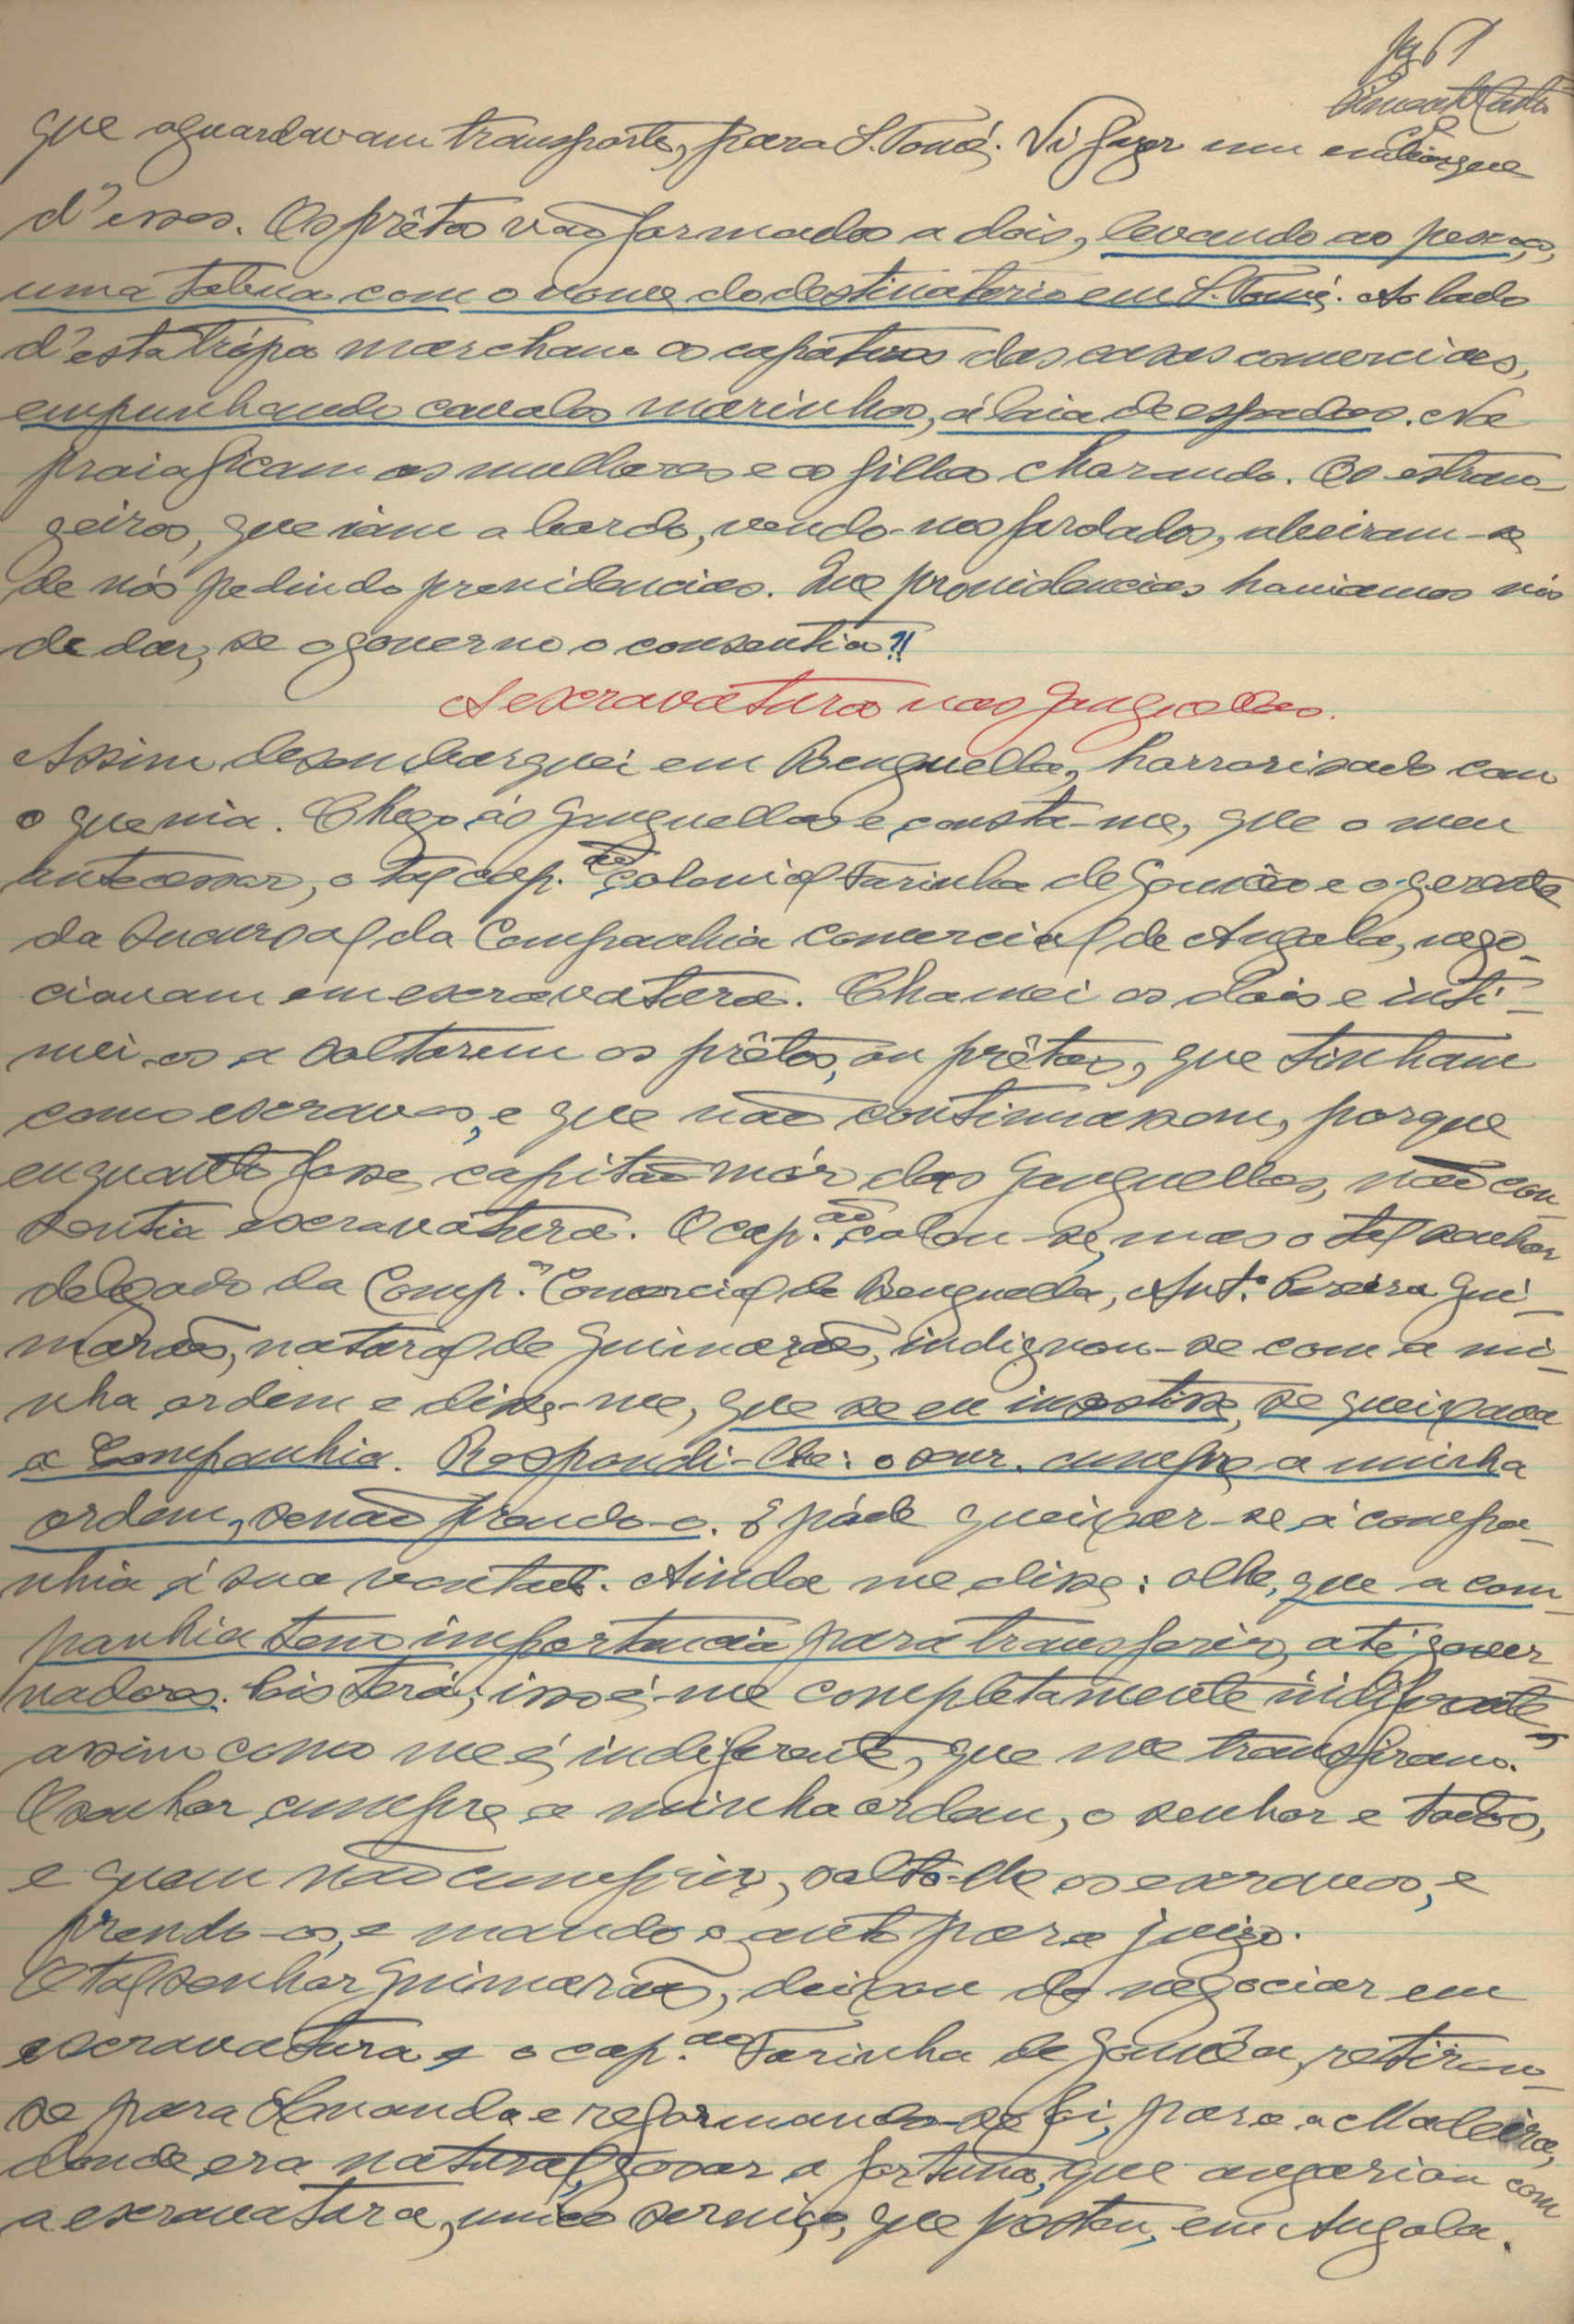 que aguardavam transporte, para S. Tomé. Vi fazer um embarque
d'esses. Os prêtos vão formados a dois, levando ao pescoço,
uma tabua com o nome do destinatorio em S. Tomé. Ao lado
d'esta trópa marcham os capatazes das casas comerciaes,
empunhando cavalos marinhos, á laia de espadas. Na
praia ficam as mulheres e os filhos chorando. Os estran-
geiros, que iam a bordo, vendo-nos fardados, abeiram-se
de nós pedindo providencias. Que providencias haviamos nós
de dar, se o governo o consentia?!
A escravatura nas Ganguellas.
Assim desembarquei em Benguella, horrorisado com
o que via. Chego ás Ganguellas e consta-me, que o meu
antecessor, o tal cap.ão colonial Farinha de Gouvêa e o gerente
da Sucursal da Companhia comercial de Angola, nego-
ciavam em escravatura. Chamei os dois e inti-
mei-os a soltarem os prêtos, ou prêtas, que tinham
como escravos, e que não continuassem, porque
enquanto fosse capitão-mór das Ganguellas, não con-
sentia escravatura. O cap.ão calou-se, mas o tal senhor
delgado da Comp.ª Comercial de Benguella, Ant.º Pereira Gui-
marães, natural de Guimarães, indignou-se com a mi-
nha ordem e disse-me, que se eu insistisse, se queixava
a Companhia. Respondi-lhe: o snr. cumpre a minha
ordem, senão prendo-o. E póde queixar-se á compa-
nhia á sua vontade. Ainda me disse: olhe, que a com-
panhia tem importancia para transferir, até gover
nadores. Pois terá; isso é-me completamente indiferente,
assim como me é indiferente, que me transfiram.
O senhor cumpre a minha ordem, o senhor e todos,
e quem não cumprir, solto-lhe os escravos, e
prendo-os, e mando o auto para juizo.
O tal senhor Guimarães, deixou de negociar em
escravatura e o cap.ão Farinha de Gouvêa, retirou-
se para Loanda e reformando-se foi, para a Madeira,
donde era natural, gosar a fortuna, que angariou com
a escravatura, unico serviço, que prestou, em Angola.